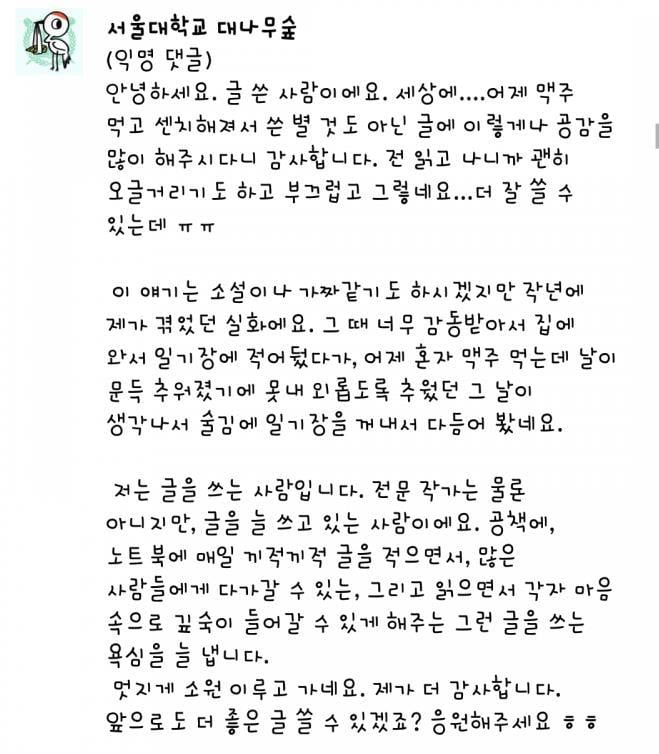 서울대학교 대나무숲
(익명 댓글)
안녕하세요. 글 쓴 사람이에요. 세상에....어제 맥주
먹고 센치해져서 쓴 별 것도 아닌 글에 이렇게나 공감을
많이 해주시다니 감사합니다. 전 읽고 나니까 괜히
오글거리기도 하고 부끄럽고 그렇네요...더 잘 쓸 수
있는데 ㅠㅠ
이 얘기는 소설이나 가짜같기도 하시겠지만 작년에
제가 겪었던 실화에요. 그 때 너무 감동받아서 집에
와서 일기장에 적어뒀다가, 어제 혼자 맥주 먹는데 날이
문득 추워졌기에 못내 외롭도록 추웠던 그 날이
생각나서 술김에 일기장을 꺼내서 다듬어 봤네요.
저는 글을 쓰는 사람입니다. 전문 작가는 물론
아니지만, 글을 늘 쓰고 있는 사람이에요. 공책에,
노트북에 매일 끼적끼적 글을 적으면서, 많은
사람들에게 다가갈 수 있는, 그리고 읽으면서 각자 마음
속으로 깊숙이 들어갈 수 있게 해주는 그런 글을 쓰는
욕심을 늘 냅니다.
멋지게 소원 이루고 가네요. 제가 더 감사합니다.
앞으로도 더 좋은 글 쓸 수 있겠죠? 응원해주세요 ㅎㅎ